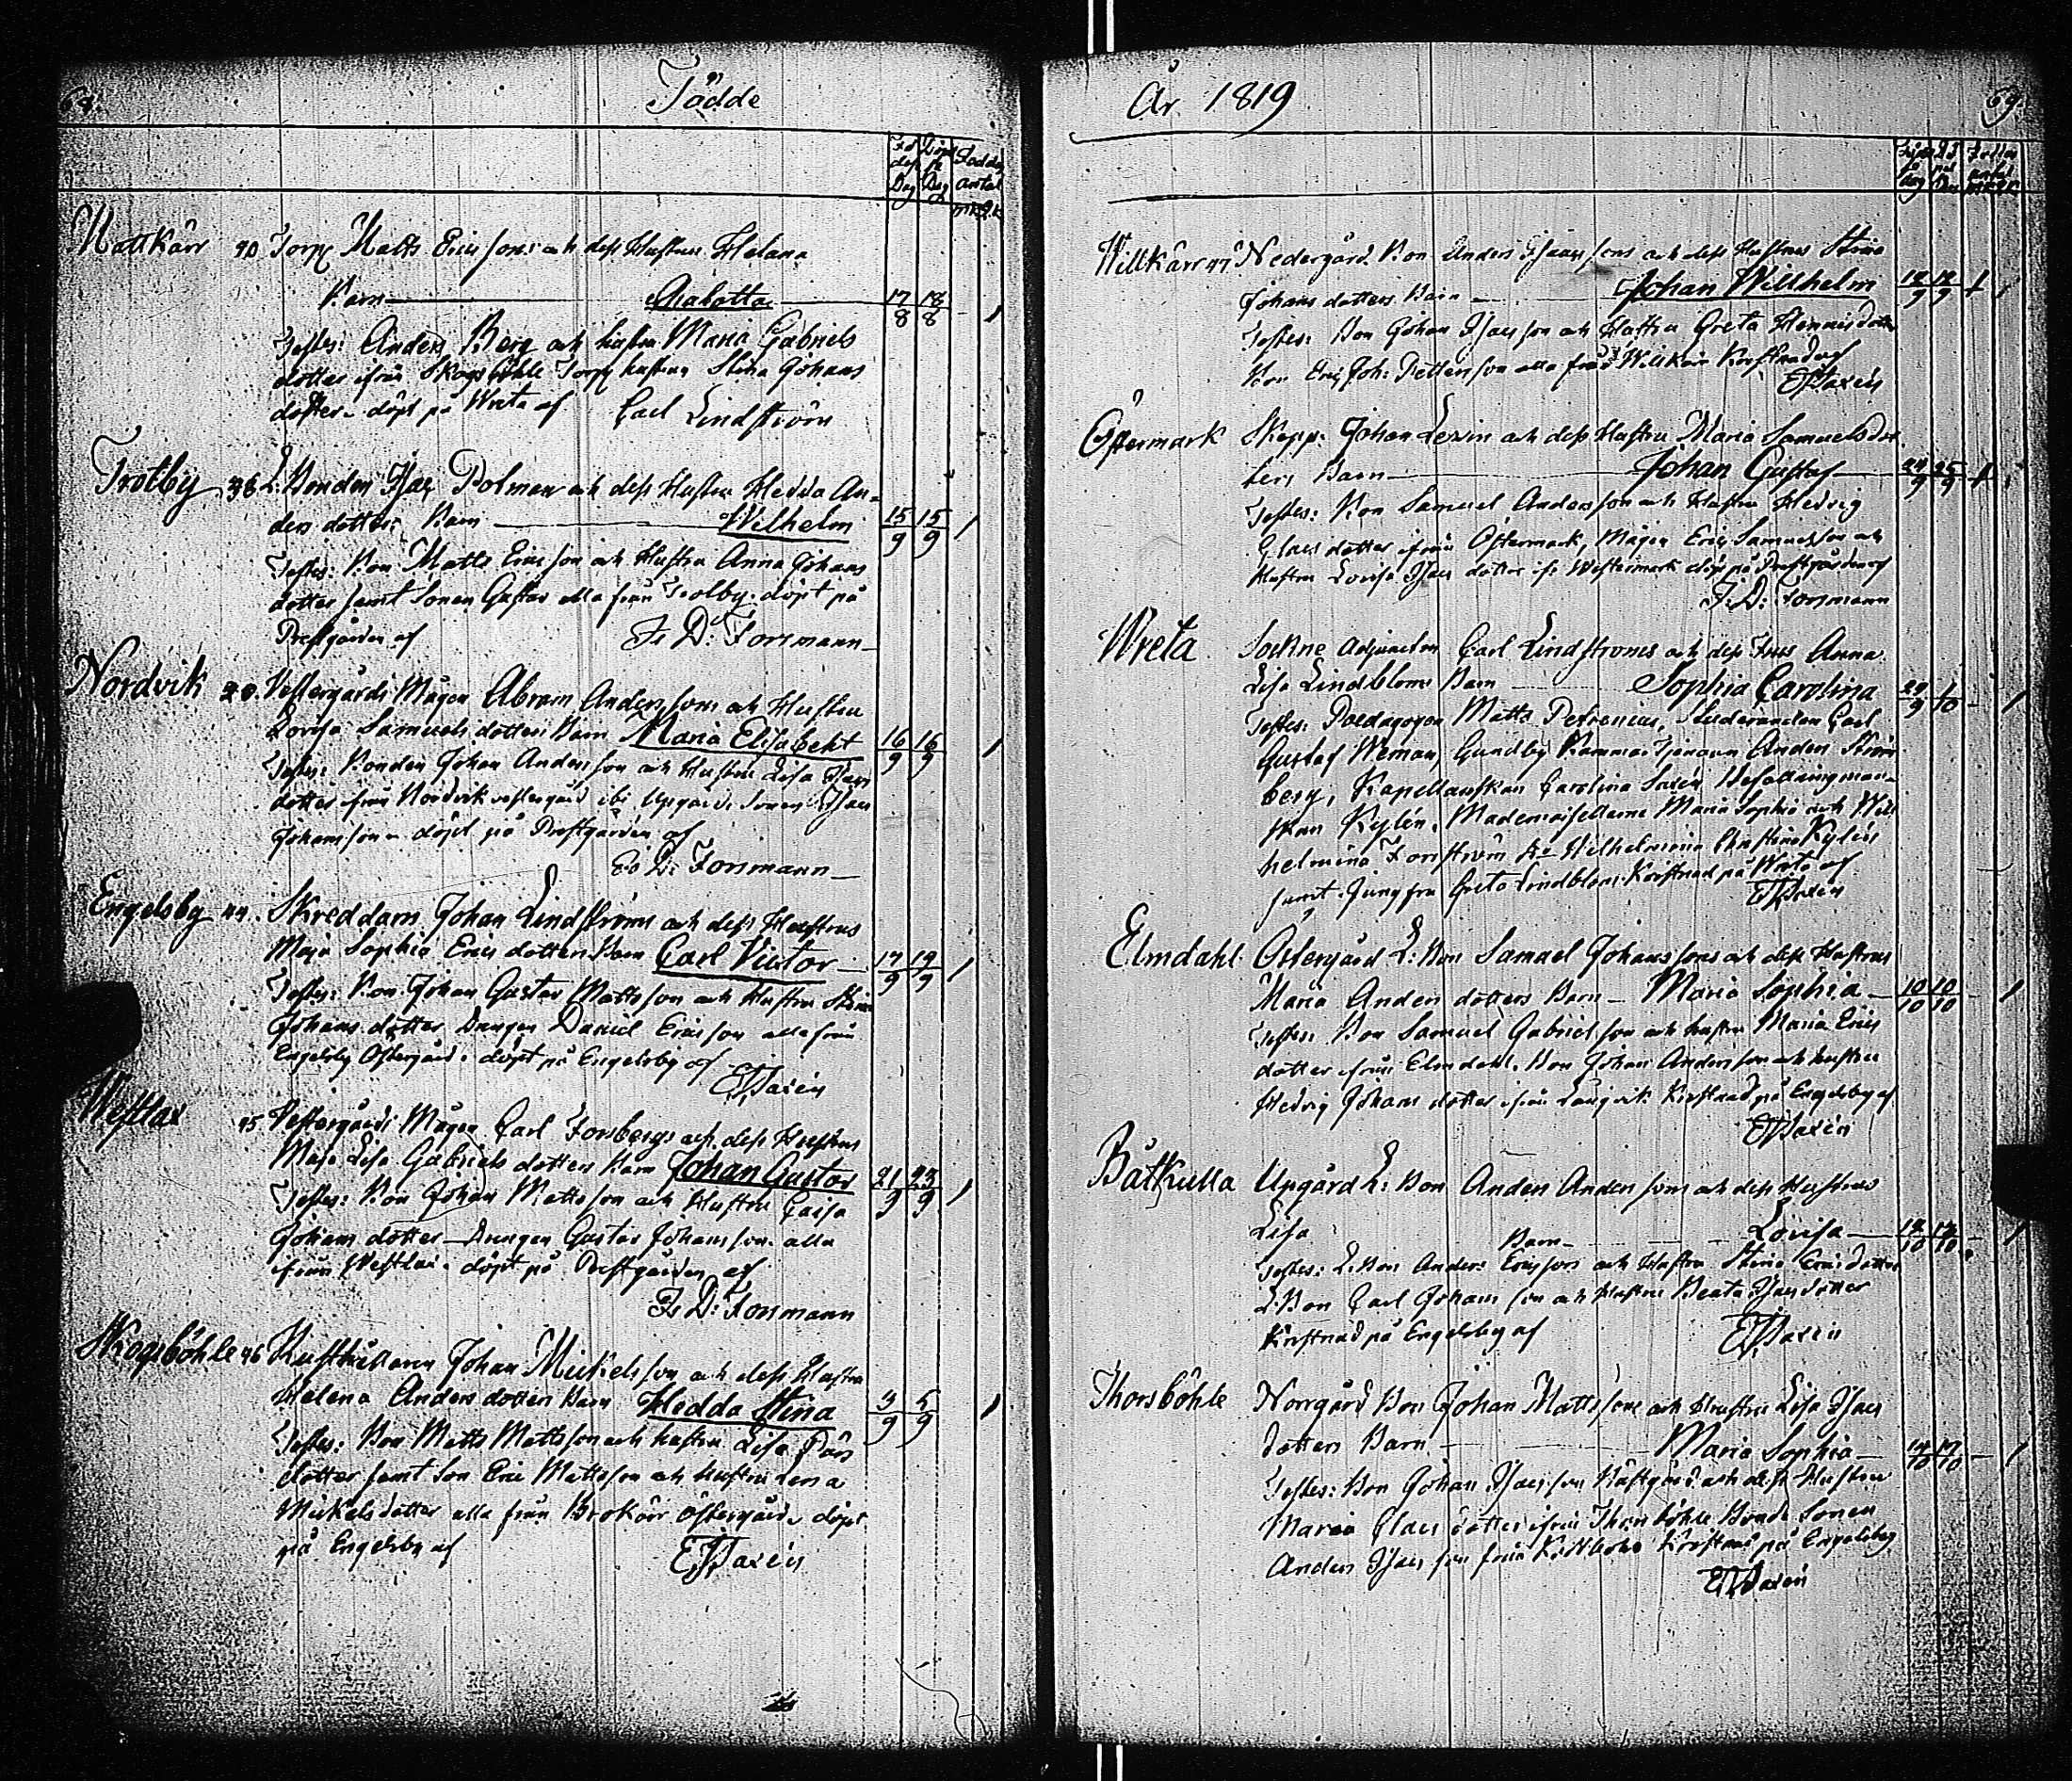 68.
Födde
Födelse Dag
Döpelse Dag
Födde antal
mk qk
Nattkärr 40 Torp Matts Ericssons och dess Hustrus Helena
Barn — Chalotta — 17/8 18/8 - 1
Testes: Anders Berg och hustru Maria Gabriels
dotter ifrån Skogsböhle Torp hustrun Stina Johans
dotter. döpt på Wreta af Carl Lindström
Trotby L: Bonden Isac Bolmans och dess Hustru Hedda An-
ders dotters Barn — Wilhelm 15/9 15/9 1
Testes: Bon Matts Ericsson och Hustru Anna Johans
dotter samt Sonen Gustav alla från Trotby. döpt på
Prestgården af Fr. D: Forsmann
Nordvik Vestergårds Mågen Abram Anderssons och Hustru
Lovisa Samuels dotters Barn Maria Elisabeht 16/9 16/9 1
Testes: Bonden Johan Andersson och Hustru Lisa
dotter ifrån Nordvik vestergård ibm Uppgårds Sonen Isac
Johansson. döpt på Prestgården af
Fr D: Forsmann
Engelsby 44. Skreddarn Johan Lindströms och dess Hustrus
Maja Sophia Erics dotters Barn Carl Victor — 17/9 19/9 1
Testes: Bon Johan Gustav Mattsson och Hustru Stina
Johans dotter Drengen Daniel Ericsson alla från
Engelsby Östergård. döpt på Engelsby af
Westlax 45 Vestergårds Mågen Carl Forsbergs och dess Hustrus
Maja Lisa Gabriels dotters Barn Johan Gustav 21/9 23/9 1
Testes: Bon Johan Mattsson och Hustru Caisa
Johans dotter — Drengen Gustav Johansson. alla
ifrån Westlax. döpt på Prestgården af
Fr D: Forsmann
Skogsböhle 46 Rusthållarn Johan Mickelsson och dess Hustru
Helena Anders dotters Barn Hedda Stina 3/9 5/9 1
Testes: Bon Matts Mattsson och hustru Lisa
dotter samt Son Eric Mattsson och hustru Lena
Mickelsdotter alla från Brokärr östergård. döpt
på Engelsby af
År 1819
69.
Willkärr 47 Nedergård. Bon Anders Isacssons och dess Hustrus Stina
Johans dotters Barn — Johan Willhelm 12/9 12/9 1
Testes: Bon Johan Isacsson och Hustru Greta Hinricsdotter
Bon Eric Joh: Pettersson alla från Willkärr Kristnad af
Östermark Skepp: Johan Lexin och dess Hustru Maria Samuelsdot-
ters Barn — Johan Gustaf — 24/9 25/9 1
Testes: Bon Samuel Andersson och Hustru Hedvig
Claes dotter ifrån Östermark, Mågen Eric Samuelsson och
Hustru Lovisa Isacs dotter ifr Westermark döpt på Prestgården af
F: D: Forsmann
Wreta Sockne Adjuncten Carl Lindströms och dess Frus Anna
Lisa Lindbloms Barn — Sophia Carolina 29/9 1/10 - 1
Testes: Paedagogen Matts Petrenius, Studeranden Carl
Gustaf Weman, Gundby Kammar Tjenaren Anders Ström-
berg, Kapellanskan Carolina Saxén Befallningman-
skan Kylén, Mademoisellerne Maria Sophia och Will
helmina Forsström Wilhelmina Christina Kylén
samt Jungfru Greta Lindblom Kristnad på Wreta af
Elmdahl Östergård L: Bon Samuel Johanssons och dess Hustrus
Maria Anders dotters Barn — Maria Sophia — 10/10 10/10 - 1
Testes: Bon Samuel Gabrielsson och hustru Maria Erics
dotter ifrån Elmdahl. Bon Johan Andersson och hustru
Hedvig Johans dotter ifrån Långvik Kristnad på Engelsby af
Båtkulla Uppgård L: Bon Anders Anderssons och dess Hustrus
Lisa Barn — Lovisa — 12/10 13/10 - 1
Testes: L: Bon Anders Ericsson och Hustru Stina Ericsdotter
L: Bon Carl Johansson och Hustru Beata Isacsdotter
Kristnad på Engelsby af
Thorsböhle Norrgård Bon Johan Mattssons och Hustru Lisa Isacs
dotters Barn — Maria Sophia — 14/10 17/10 - 1
Testes: Bon Johan Isacsson och dess Hustru
Maria Claes dotter ifrån Thorsböhle Bonde Sonen
Anders Isacsson från Kristnad på Engelsby